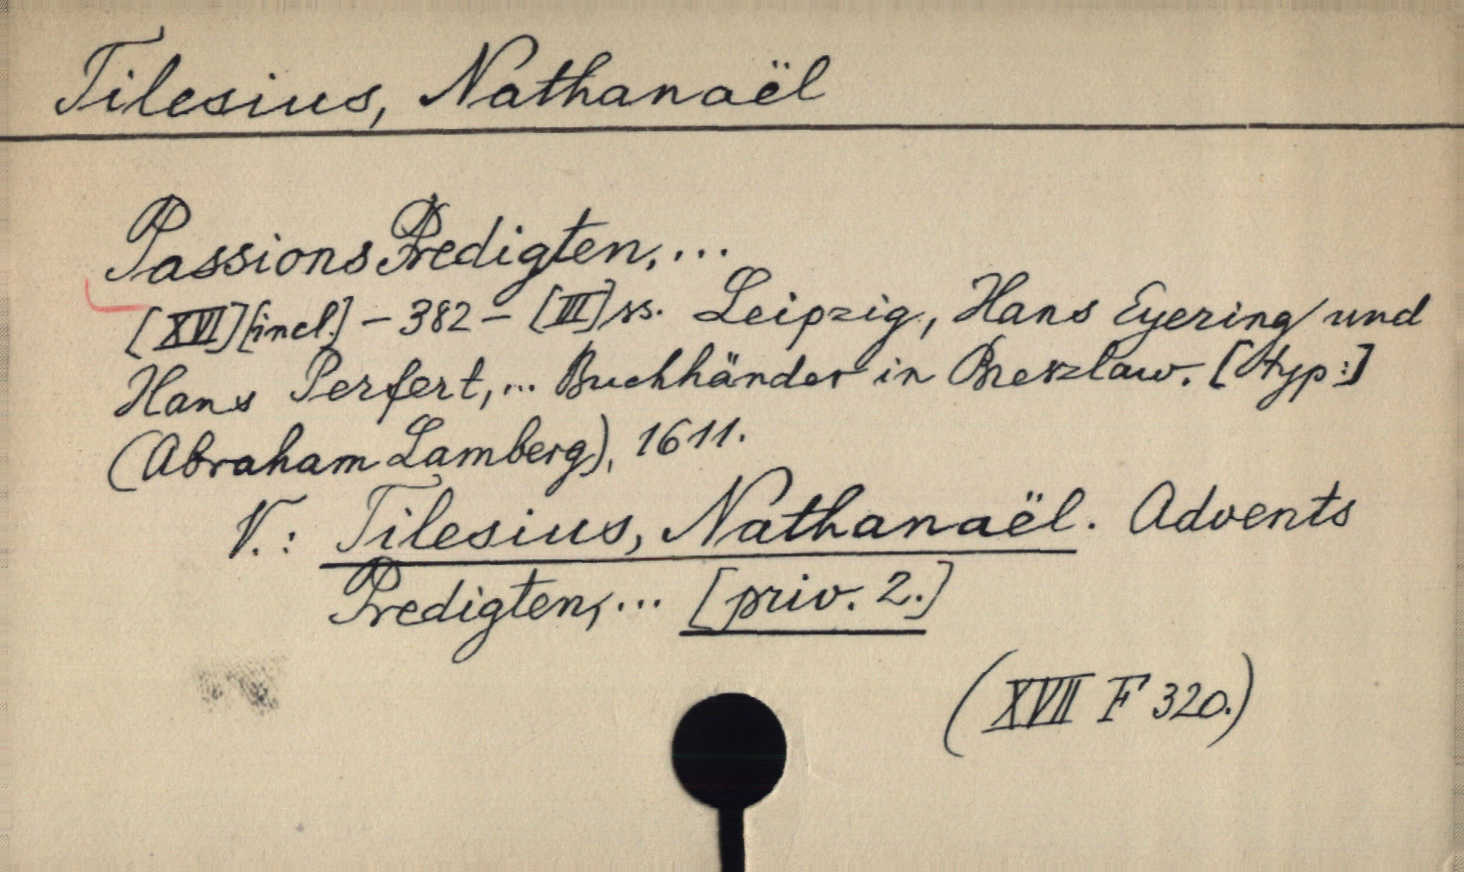 Tilesius, Nathanaël
Passions Predigten,...
[XVI][incl.] - 382 - [III] ss. Leipzig, Hans Eyering und
Hans Perfert,... Buchhänder in Breszlaw. [typ:]
(Abraham Lamberg), 1611.
V.: Tilesius, Nathanaël. Advents
Predigten,... [priv. 2.]
(XVII F 320.)